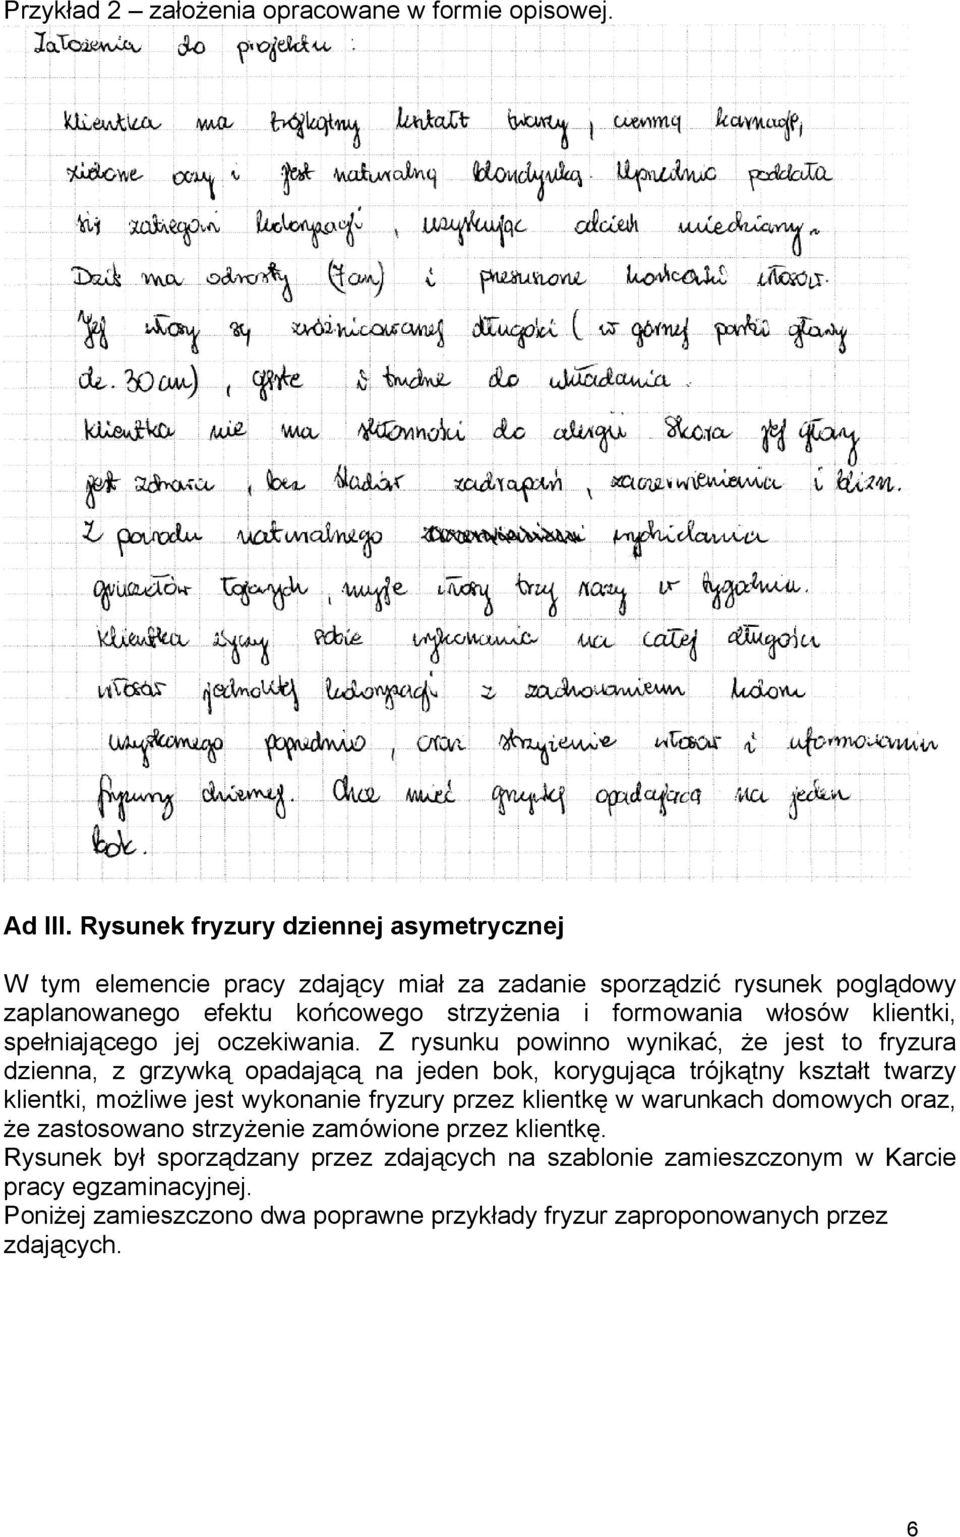 Przykład 2 – założenia opracowane w formie opisowej.
Założenia do projektu :
Klientka ma trójkątny kształt twarzy, ciemną karnację,
zielone oczy i jest naturalną blondynką. Uprzednio poddała
się zabiegowi koloryzacji, uzyskując odcień miedziany.
Dziś ma odrosty (7cm) i przesuszone końcówki włosów.
Jej włosy są zróżnicowanej długości ( w górnej partii głowy
dł. 30cm), gęste i trudne do układania.
Klientka nie ma skłonności do alergii. Skóra jej głowy
jest zdrowa, bez śladów zadrapań, zaczerwienienia i blizn.
Z powodu naturalnego wydzielania
gruczołów łojowych, myje włosy trzy razy w tygodniu.
Klientka życzy sobie wykonania na całej długości
włosów jednolitej koloryzacji z zachowaniem koloru
uzyskanego poprzednio, oraz strzyżenie włosów i uformowaniu
fryzury dziennej. Chce mieć grzywkę opadającą na jeden
bok.
Ad III. Rysunek fryzury dziennej asymetrycznej
W tym elemencie pracy zdający miał za zadanie sporządzić rysunek poglądowy
zaplanowanego efektu końcowego strzyżenia i formowania włosów klientki,
spełniającego jej oczekiwania. Z rysunku powinno wynikać, że jest to fryzura
dzienna, z grzywką opadającą na jeden bok, korygująca trójkątny kształt twarzy
klientki, możliwe jest wykonanie fryzury przez klientkę w warunkach domowych oraz,
że zastosowano strzyżenie zamówione przez klientkę.
Rysunek był sporządzany przez zdających na szablonie zamieszczonym w Karcie
pracy egzaminacyjnej.
Poniżej zamieszczono dwa poprawne przykłady fryzur zaproponowanych przez
zdających.
6